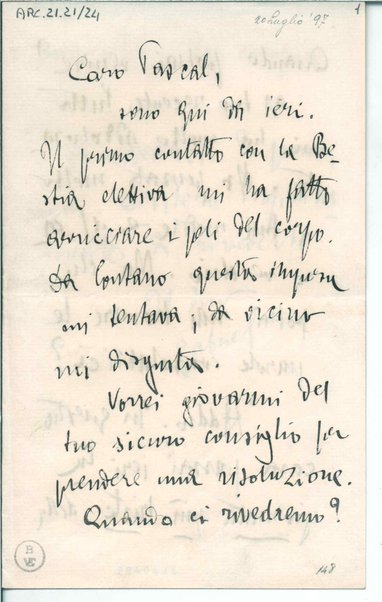 ARC.21.21/24
20 Luglio '97.
1
Caro Pascal,
sono qui da ieri.
Il primo contatto con la Be-
stia elettiva mi ha fatto
arricciare i peli del corpo.
Da lontano questa impresa
mi tentava; da vicino
mi disgusta.
Vorrei giovarmi del
tuo sicuro consiglio per
prendere una risoluzione.
Quando ci rivedremo?
B
VE
148